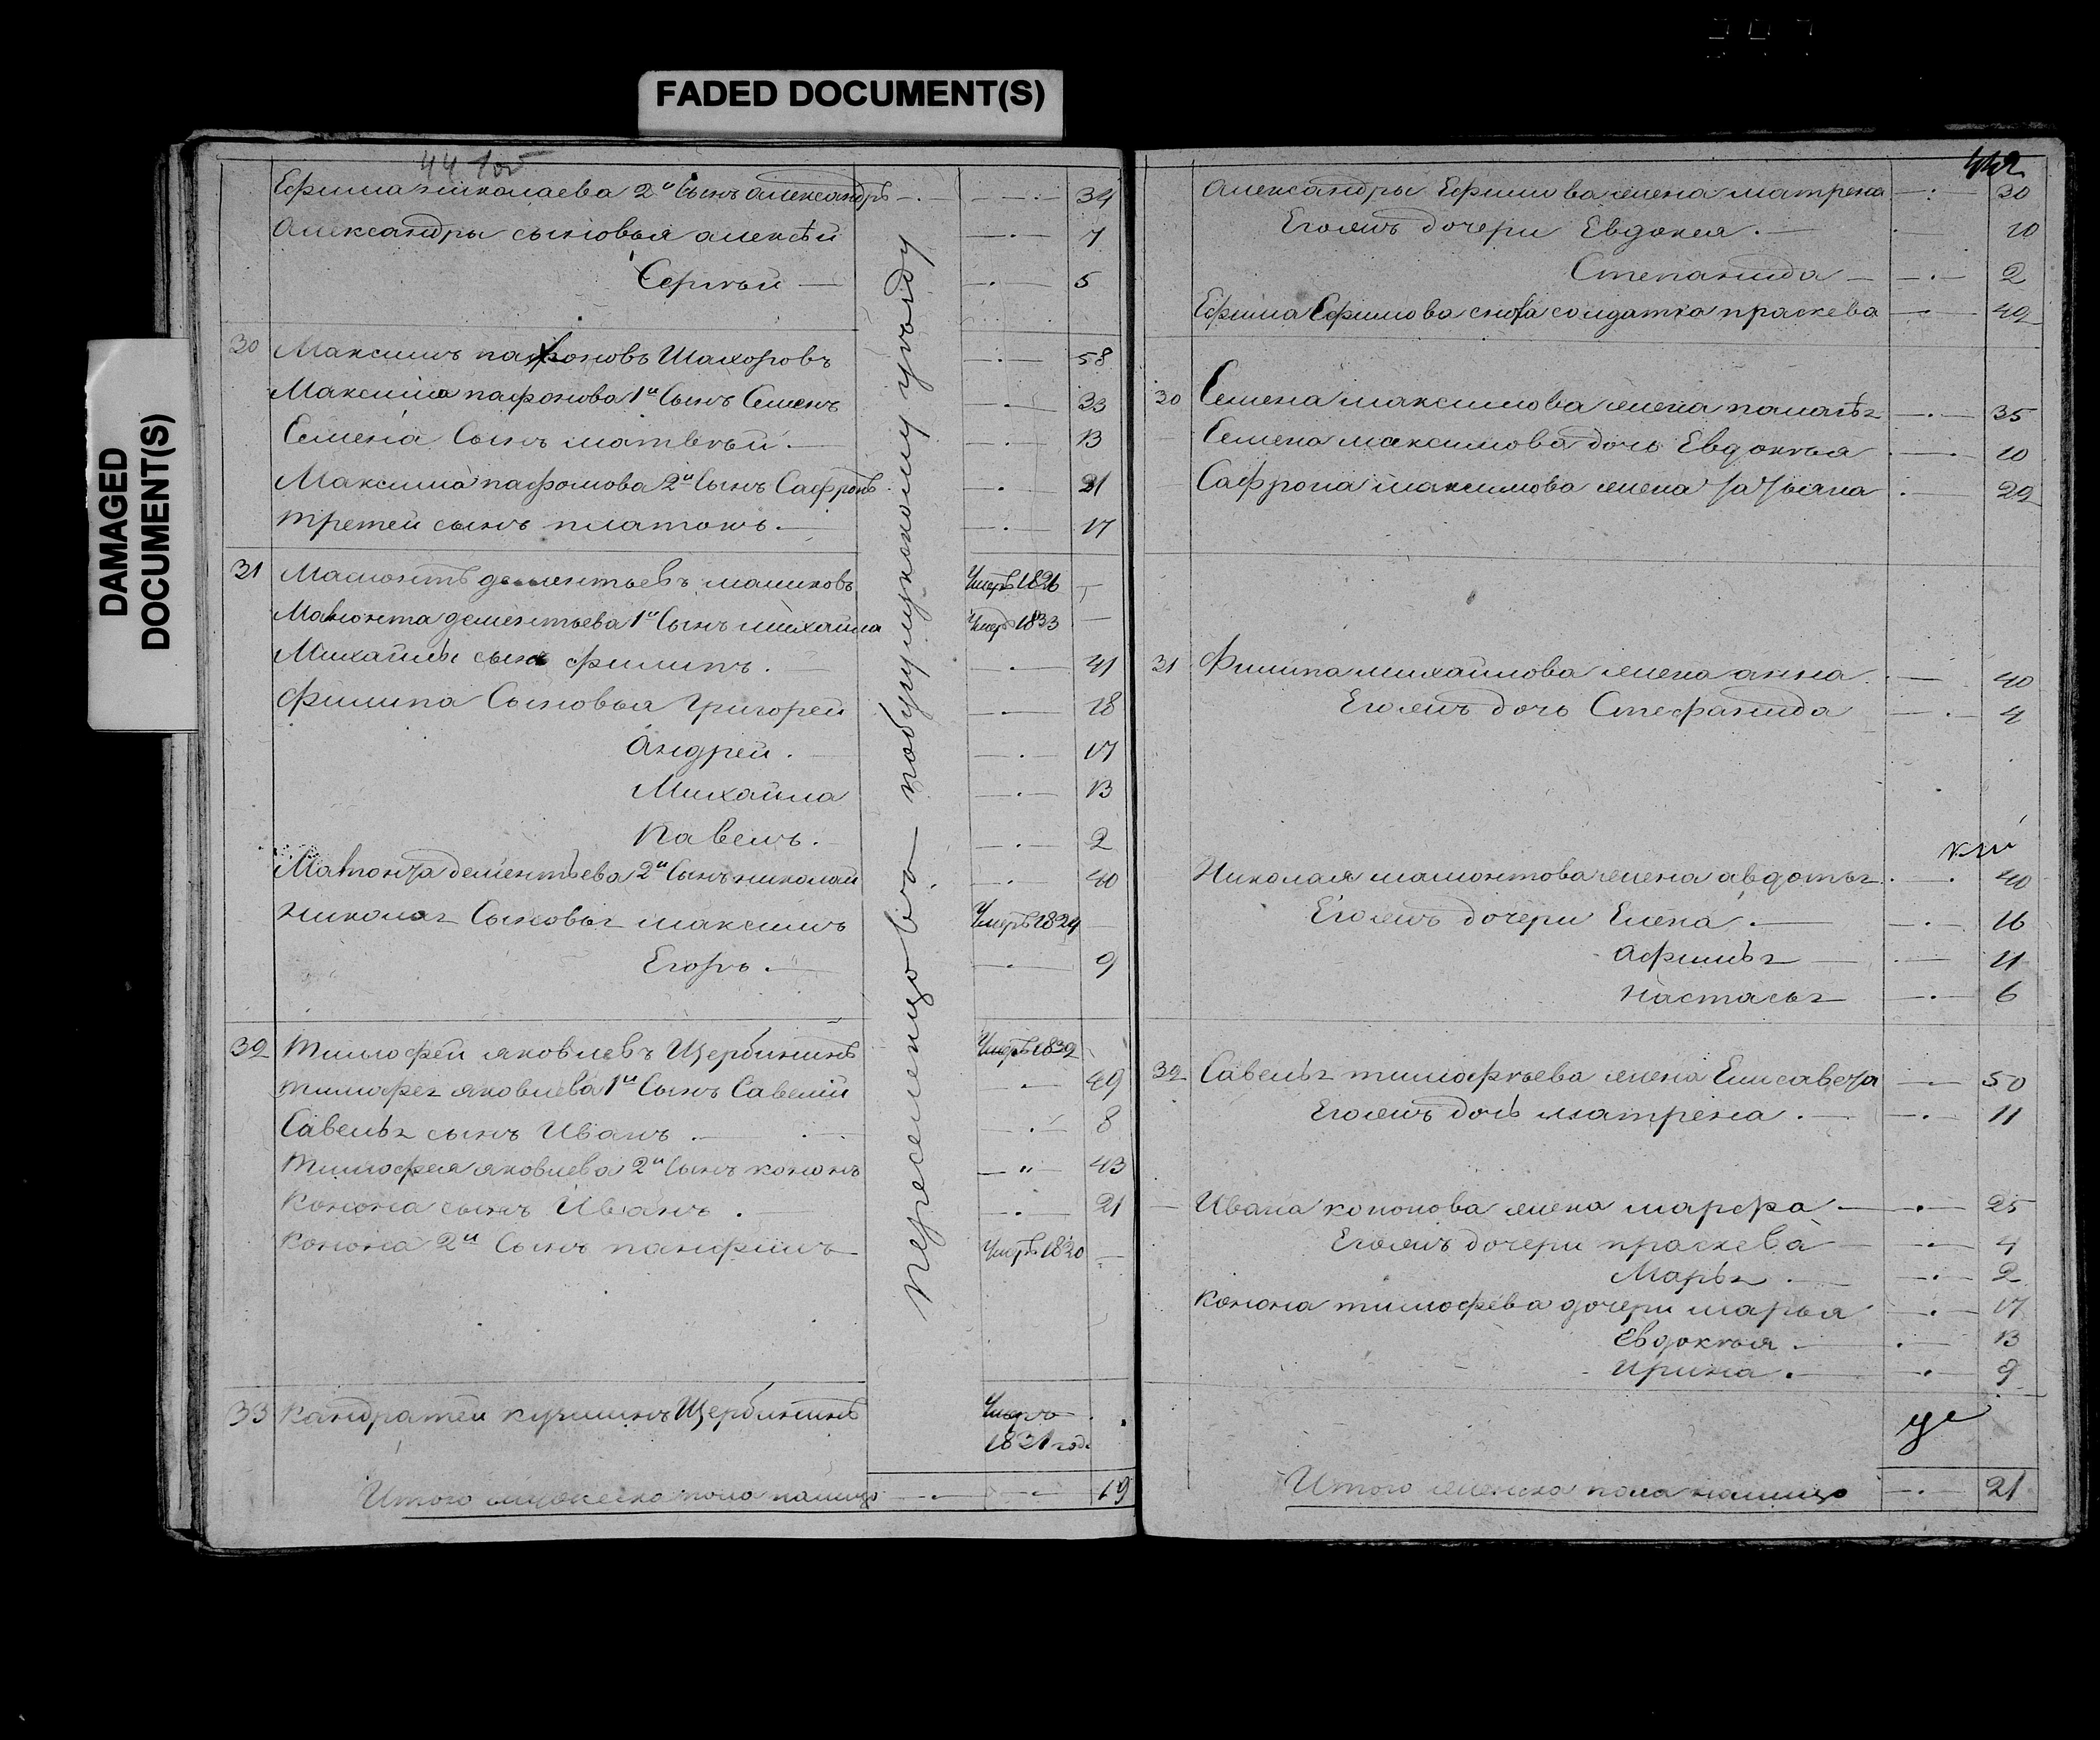 FADED DOCUMENT(S)
DAMAGED
DOCUMENT(S)
44 105
Ефима николаева 2й Сынъ александръ 34
Александры сыновья алексѣй 7
Сергѣй 5
30 Максимъ пафоновъ Шахоровъ 58
Максима пафонова 1й Сынъ Семенъ 33
Семена Сынъ матвѣй 13
Максима пафонова 2й Сынъ Сафронъ 21
третей сынъ платонъ 17
31 Мамонтъ дементьевъ маликовъ Умеръ 1826
Мамонта дементьева 1й Сынъ михайла Умеръ 1833
Михайлы сынъ филипъ 41
филипа Сыновья Григорей 18
Андрей 17
Михайла 13
Павелъ 2
Мамонта дементьева 2й Сынъ николай 40
Николая Сыновья максимъ Умеръ 1824
Егоръ 9
32 Тимофей яковлевъ Щербининъ Умеръ 1832
тимофея яковлева 1й Сынъ Савелий 49
Савелья сынъ Иванъ 8
Тимофея яковлева 2й Сынъ кононъ 43
Конона сынъ Иванъ 21
Конона 2й Сынъ панфилъ Умеръ 1820
33 Кандратей кузминъ Щербининъ Умеръ
1831 год
Итого мужеска пола налицо 19
Переселенцово побузулуцкому уѣзду
442
Александры Ефимова жена матрена 30
Егожъ дочери Евдокея 10
Степанида 2
Ефима Ефимова сноха солдатка праскева 42
30 Семена максимова жена 35
Семена максимова дочь Евдокѣя 10
Сафрона максимова жена татьяна 22
31 Филипа михайлова жена анна 40
Егожъ дочь Стефанида 4
Николая мамонтова жена авдотья 40
Егожъ дочери Елена 16
афимья 11
настасья 6
32 Савелья тимофѣева жена Елисавета 50
Егожъ дочь матрена 11
Ивана кононова жена марфа 25
Егожъ дочери праскева 4
Марья 2
Конона тимофева дочери марья 17
Евдокѣя 13
Ирина 9
Итого женска пола налицо 21